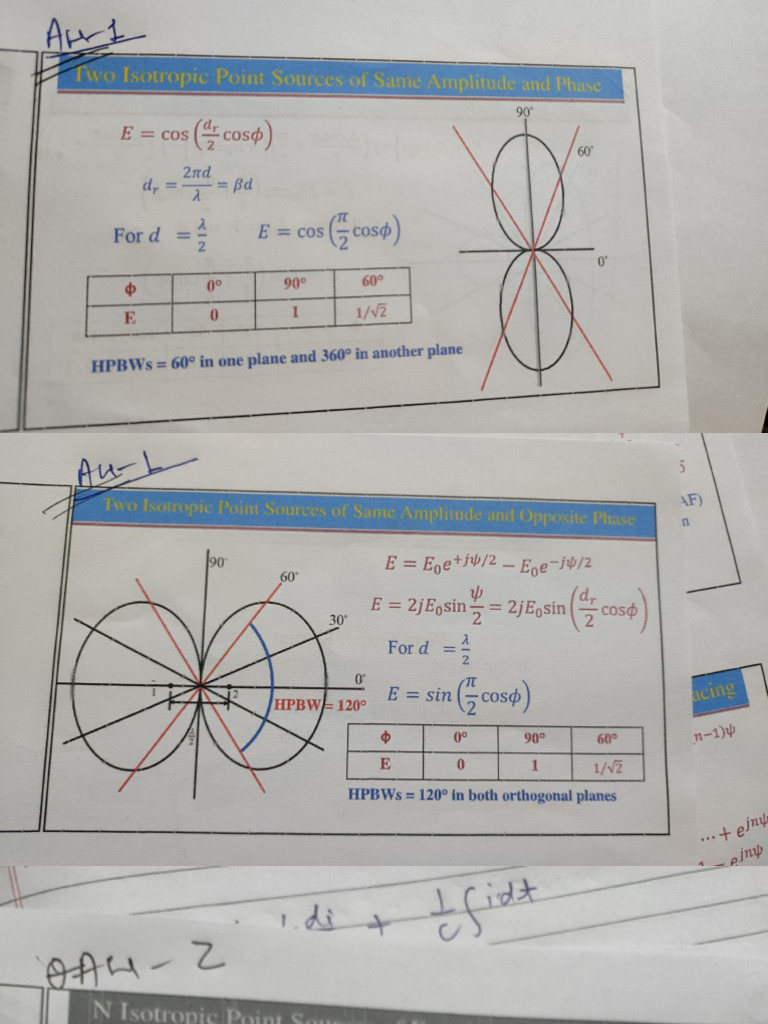 AW-1
Two Isotropic Point Sources of Same Amplitude and Phase
E = cos (dᵣ/2 cosϕ)
dᵣ = 2πd/λ = βd
For d = λ/2 E = cos (π/2 cosϕ)
Φ 0° 90° 60°
E 0 1 1/√2
HPBWs = 60° in one plane and 360° in another plane
90°
60°
0°
AW-1
Two Isotropic Point Sources of Same Amplitude and Opposite Phase
90°
60°
30°
0°
1 2
HPBW = 120°
λ/2
E = E₀e^{+jψ/2} − E₀e^{−jψ/2}
E = 2jE₀sin ψ/2 = 2jE₀sin (dᵣ/2 cosϕ)
For d = λ/2
E = sin (π/2 cosϕ)
Φ 0° 90° 60°
E 0 1 1/√2
HPBWs = 120° in both orthogonal planes
5
AF)
n
acing
n−1)ψ
... + e^{jnψ}
1 − e^{jnψ}
di + 1/C ∫idt
AW - 2
N Isotropic Point